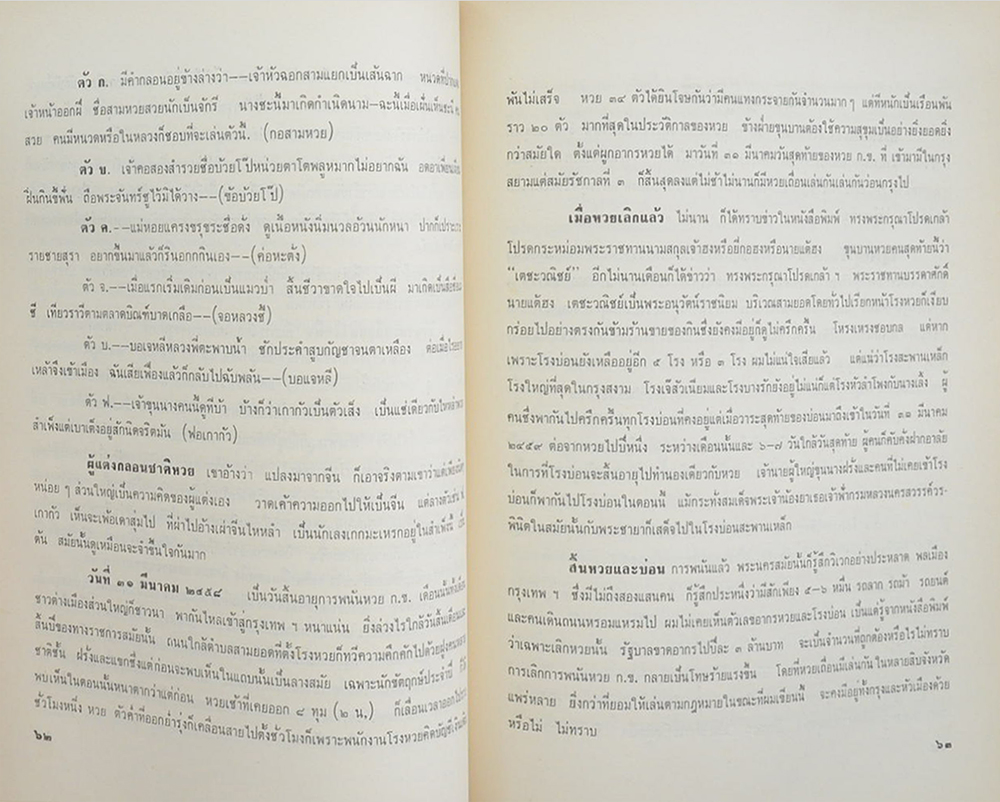 ตัว ก. มีคำกลอนอยู่ข้างล่างว่า--เจ้าหัวฉอกสามแยกเป็นเส้นฉาก หนวดที่ปาก
เจ้าหน้าออกผี ชื่อสามหวยสวยนักเป็นจักรี นางชะนีมาเกิดกำเนิดนาม-ฉะนี้เมื่อเผ่นเห็น
สวย คนมีหนวดหรือในหลวงก็ชอบที่จะเล่นตัวนี้. (กอสามหวย)
ตัว ข. เจ้าคอสองสำรวยชื่อบ้วยโป๊หน่วยตาโตพลูหมากไม่อยากฉัน
ฝิ่นกินขี้พั่น ถือพระจันทร์ชูไว้มิได้วาง--(ข้อบ้วยโป๊)
ตัว ค.--แม่หอยแครงขรุขระชื่อตั้ง ดูเนื้อหนังนิ่มนวลอ้วนนักหนา ปากก็เปราะ
รายชายสุรา อยากขึ้นมาแล้วก็รินอกกกินเอง--(ค่อหะตั๋ง)
ตัว จ.--เมื่อแรกเริ่มเดิมก่อนเป็นแมวป่า สิ้นชีวาขาดใจไปเป็นผี มาเกิดเป็น
ชี เที่ยวราวีตามตลาดบิณฑ์บาตเกลือ--(จอหลวงชี)
ตัว บ.--บอเจหลีหลวงพี่ตะพาบน้ำ ชักประคำสูบกัญชาจนตาเหลือง ต่อเมื่อ
เหล้าจึงเข้าเมือง ฉันเสียเฟื่องแล้วก็กลับไปฉับพลัน--(บอแจหลี)
ตัว ฟ.--เจ้าขุนนางคนนี้ดูที่บ้า บ้างก็ว่าเกากัวเป็นตัวเส็ง เป็นแซ่เดียวกับ
สำเพ็งแต่เบาเต็งอยู่สักนิดจริตมัน (ฟอเกากัว)
ผู้แต่งกลอนชาติหวย เขาอ้างว่า แปลงมาจากจีน ก็เอาจริงตามเขาว่า
หน่อย ๆ ส่วนใหญ่เป็นความคิดของผู้แต่งเอง วาดเค้าความออกไปให้เป็นจีน แต่ลางตัวเช่น
เกากัว เห็นจะเพ้อเดาสุ่มไป ที่ผ่าไปอ้างเผ่าจีนไหหลำ เป็นนักเลงเกกมะเหรกอยู่ในสำเพ็งนี้
ดัน สมัยนั้นดูเหมือนจะจำขึ้นใจกันมาก
วันที่ ๓๑ มีนาคม ๒๔๕๘ เป็นวันสิ้นอายุการพนันหวย ก.ข. เดือนนั้น
ชาวต่างเมืองส่วนใหญ่ก็ชาวนา พากันไหลเข้าสู่กรุงเทพ ฯ หนาแน่น ยิ่งล่วงไรใกล้วันสิ้นเดือน
สิ้นปีของทางราชการสมัยนั้น ถนนใกล้ตำบลสามยอดที่ตั้งโรงหวยก็ทวีความคึกคักไปด้วยฝูงคน
ชาติชั้น ฝรั่งและแขกซึ่งแต่ก่อนจะพบเห็นในแถบนั้นเป็นลางสมัย เฉพาะนักขัตฤกษ์ประจำปี
พบเห็นในตอนนั้นหนาตากว่าแต่ก่อน หวยเช้าที่เคยออก ๘ ทุ่ม (๒ น.) ก็เลื่อนเวลาออกไป
ชั่วโมงหนึ่ง หวย ตัวค่ำที่ออกย่ำรุ่งก็เคลื่อนสายไปตั้งชั่วโมงก็เพราะพนักงานโรงหวยคิดบัญชีเงิน
๖๒
พันไม่เสร็จ หวย ๓๔ ตัวได้ยินโจษกันว่ามีคนแทงกระจายกันจำนวนมาก ๆ แต่ที่หนักเป็นเรือนพัน
ราว ๒๐ ตัว มากที่สุดในประวัติกาลของหวย ข้างฝ่ายขุนบานต้องใช้ความสุขุมเป็นอย่างยิ่งยอดยิ่ง
กว่าสมัยใด ตั้งแต่ผูกอากรหวยได้ มาวันที่ ๓๑ มีนาคมวันสุดท้ายของหวย ก.ข. ที่ เข้ามามีในกรุง
สยามแต่สมัยรัชกาลที่ ๓ ก็สิ้นสุดลงแต่ไม่ช้าไม่นานก็มีหวยเถื่อนเล่นกันเล่นกันว่อนกรุงไป
เมื่อหวยเลิกแล้ว ไม่นาน ก็ได้ทราบข่าวในหนังสือพิมพ์ ทรงพระกรุณาโปรดเกล้า
โปรดกระหม่อมพระราชทานนามสกุลเจ้าฮงหรือยี่กอฮงหรือนายแต้ฮง ขุนบานหวยคนสุดท้ายนี้ว่า
“เตชะวณิชย์” อีกไม่นานเดือนก็ได้ข่าวว่า ทรงพระกรุณาโปรดเกล้า ฯ พระราชทานบรรดาศักดิ์
นายแต้ฮง เตชะวณิชย์เป็นพระอนุวัตน์ราชนิยม บริเวณสามยอดโดยทั่วไปเรียกหน้าโรงหวยก็เงียบ
กร่อยไปอย่างตรงกันข้ามร้านขายของกินซึ่งยังคงมีอยู่ก็ดูไม่ครึกครื้น โหรงเหรงชอบกล แต่หาก
เพราะโรงบ่อนยังเหลืออยู่อีก ๕ โรง หรือ ๓ โรง ผมไม่แน่ใจเสียแล้ว แต่แน่ว่าโรงสะพานเหล็ก
โรงใหญ่ที่สุดในกรุงสงาม โรงเจ๊สัวเนียมและโรงบางรักยังอยู่ไม่แน่ก็แต่โรงหัวลำโพงกับนางเลิ้ง ผู้
คนซึ่งพากันไปครึกครื้นทุกโรงบ่อนที่คงอยู่แต่เมื่อวาระสุดท้ายของบ่อนมาถึงเข้าในวันที่ ๓๑ มีนาคม
๒๔๕๙ ต่อจากหวยไปปีหนึ่ง ระหว่างเดือนนั้นและ ๖-๗ วันใกล้วันสุดท้าย ผู้คนก็คับคั่งฝากอาลัย
ในการที่โรงบ่อนจะสิ้นอายุไปทำนองเดียวกับหวย เจ้านายผู้ใหญ่ขุนนางฝรั่งและคนที่ไม่เคยเข้าโรง
บ่อนก็พากันไปโรงบ่อนในตอนนี้ แม้กระทั่งสมเด็จพระเจ้าน้องยาเธอเจ้าฟ้ากรมหลวงนครสวรรค์วร-
พินิตในสมัยนั้นกับพระชายาก็เสด็จไปในโรงบ่อนสะพานเหล็ก
สิ้นหวยและบ่อน การพนันแล้ว พระนครสมัยนั้นก็รู้สึกวิเวกอย่างประหลาด พลเมือง
กรุงเทพ ฯ ซึ่งมีไม่ถึงสองแสนคน ก็รู้สึกประหนึ่งว่ามีสักเพียง ๕-๖ หมื่น รถลาก รถม้า รถยนต์
และคนเดินถนนหรอมแหรมไป ผมไม่เคยเห็นตัวเลขอากรหวยและโรงบ่อน เป็นแต่รู้จากหนังสือพิมพ์
ว่าเฉพาะเลิกหวยนั้น รัฐบาลขาดอากรไปปีละ ๓ ล้านบาท จะเป็นจำนวนที่ถูกต้องหรือไรไม่ทราบ
การเลิกการพนันหวย ก.ข. กลายเป็นโทษร้ายแรงขึ้น โดยที่หวยเถื่อนมีเล่นกัน ในหลายสิบจังหวัด
แพร่หลาย ยิ่งกว่าที่ยอมให้เล่นตามกฎหมายในขณะที่ผมเขียนนี้ จะคงมีอยู่ทั้งกรุงและหัวเมืองด้วย
หรือไม่ ไม่ทราบ
๖๓